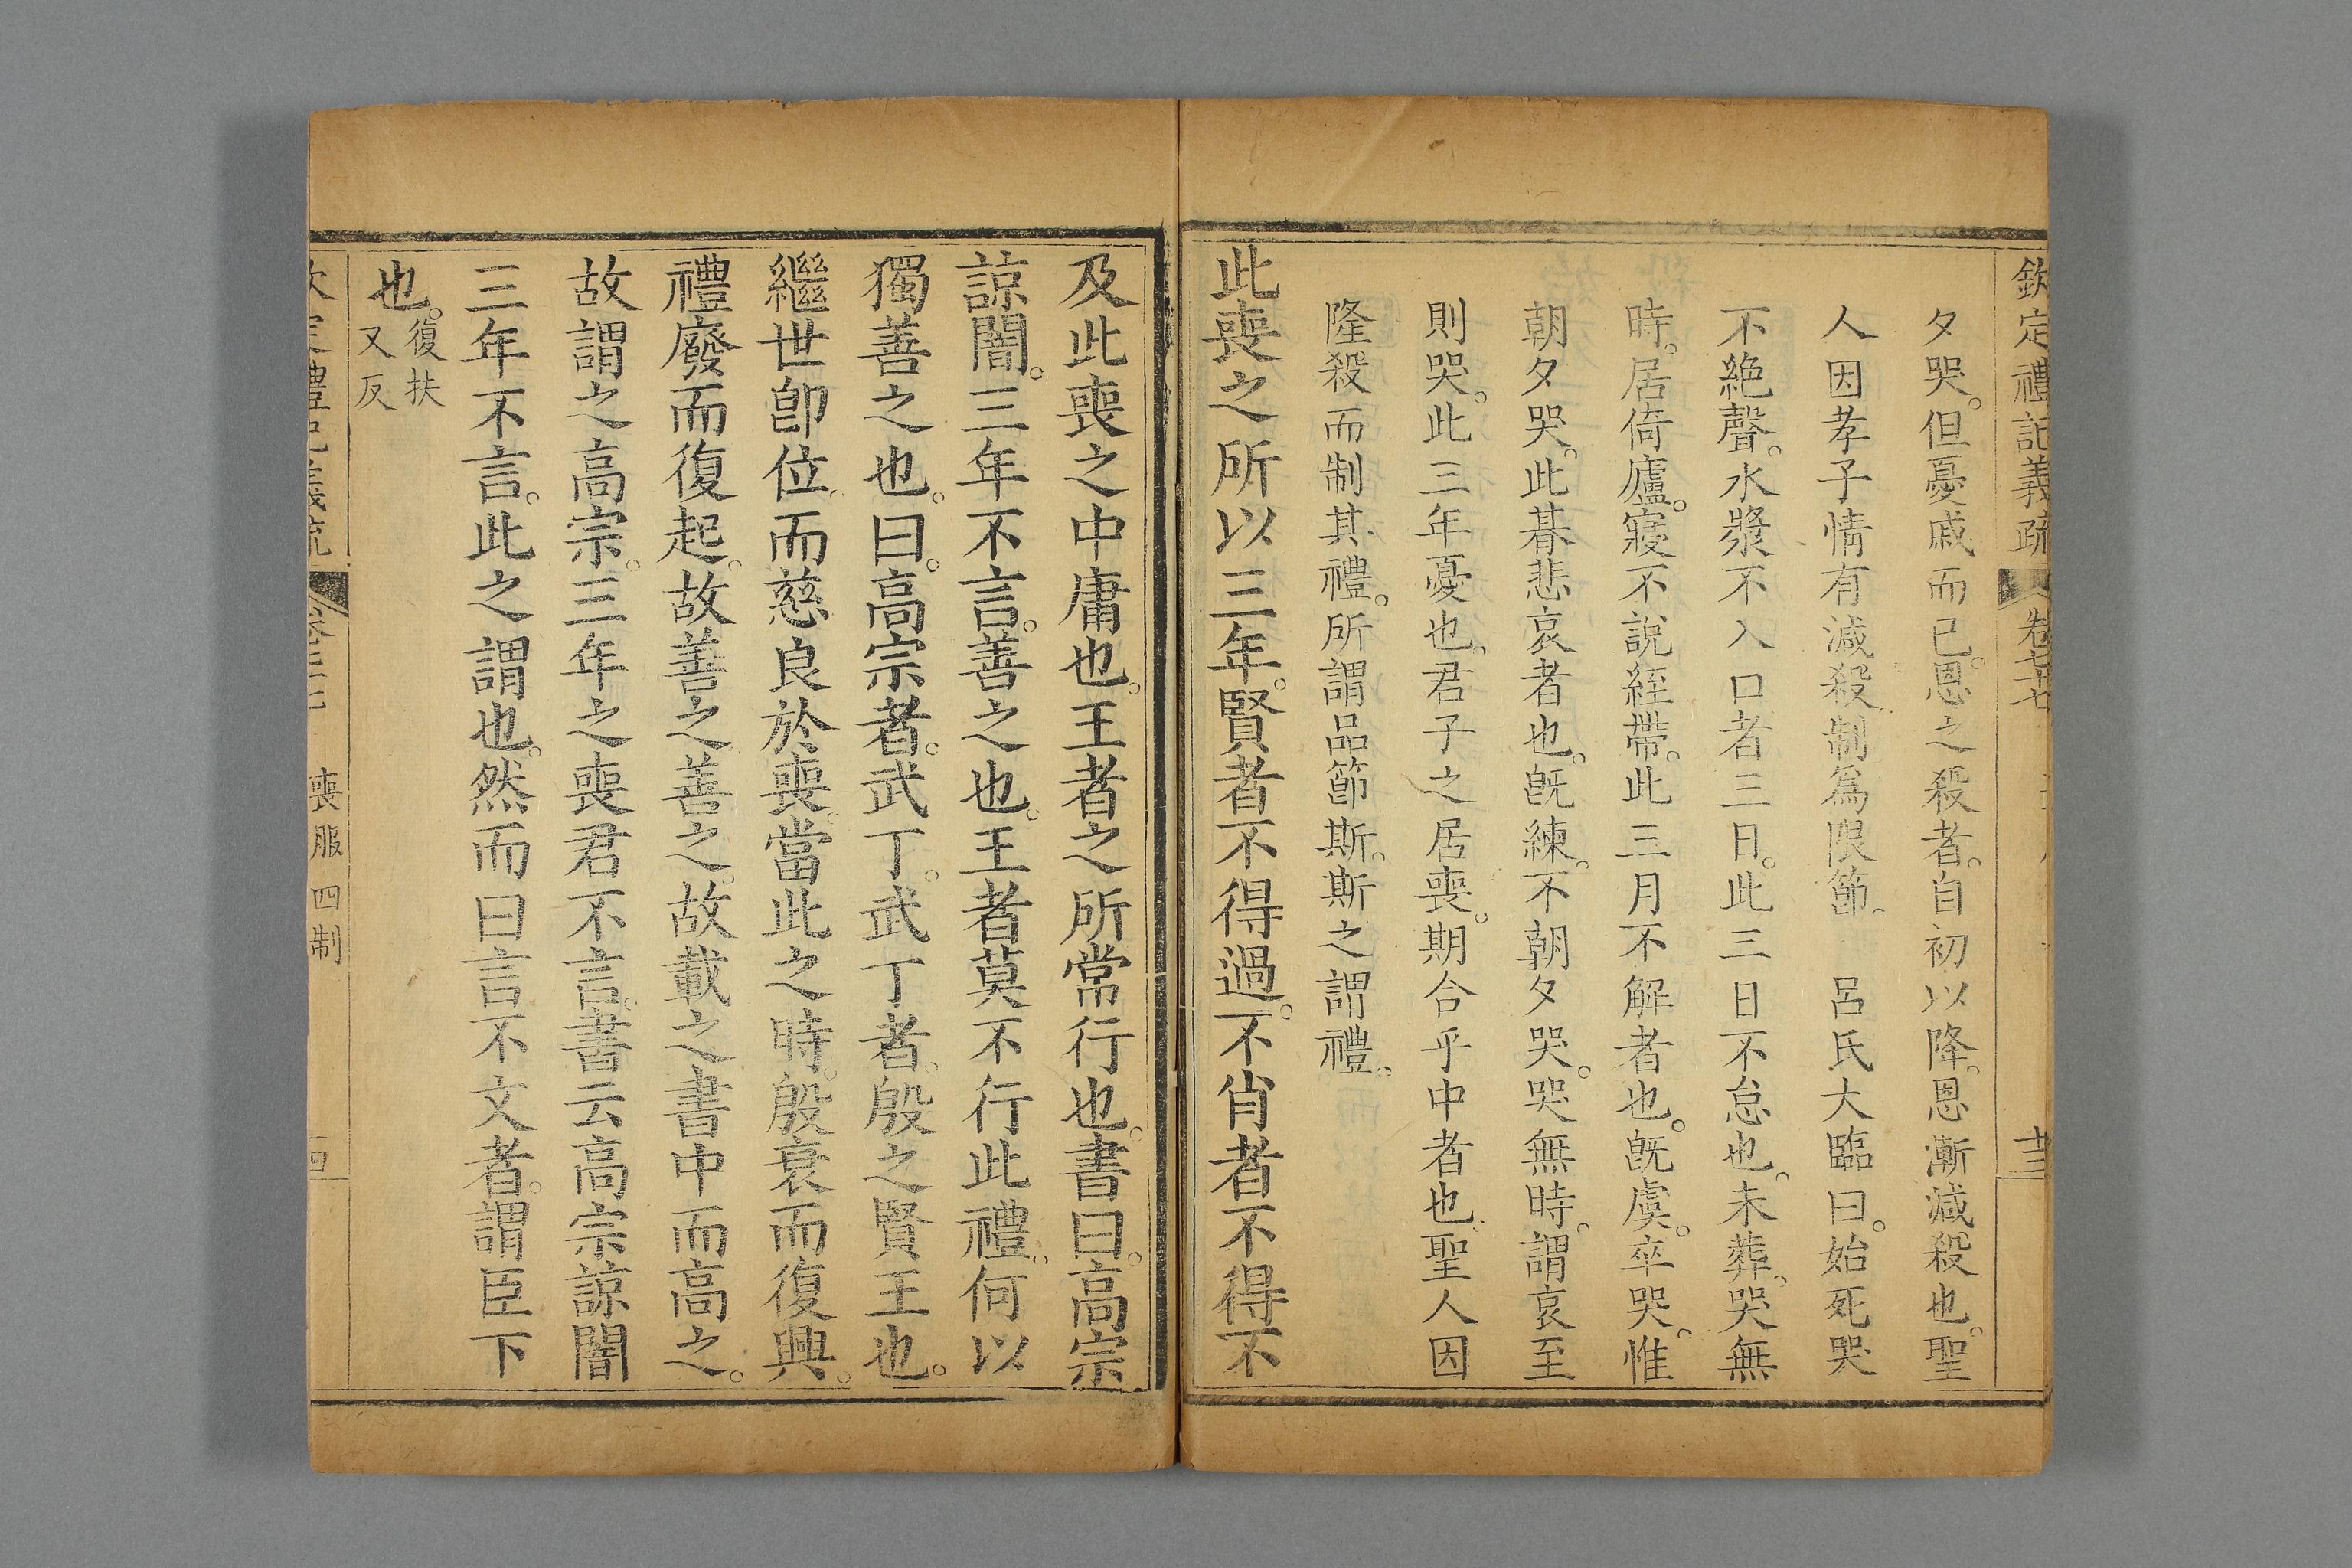 欽定禮記義疏 卷七十七 十三
夕哭。但憂戚而已。恩之殺者。自初以降。恩漸減殺也。聖
人因孝子情有減殺。制爲限節。 呂氏大臨曰。始死哭
不絶聲。水漿不入口者三日。此三日不怠也。未葬。哭無
時。居倚廬。寢不說絰帶。此三月不解者也。旣虞。卒哭。惟
朝夕哭。此朞悲哀者也。旣練。不朝夕哭。哭無時。謂哀至
則哭。此三年憂也。君子之居喪。期合乎中者也。聖人因
隆殺而制其禮。所謂品節斯。斯之謂禮。
此喪之所以三年。賢者不得過。不肖者不得不
及此喪之中庸也。王者之所常行也。書曰。高宗
諒闇。三年不言。善之也。王者莫不行此禮。何以
獨善之也。曰。高宗者。武丁。武丁者。殷之賢王也。
繼世卽位。而慈良於喪。當此之時。殷衰而復興。
禮廢而復起。故善之。善之。故載之書中而高之。
故謂之高宗。三年之喪君不言。書云高宗諒闇
三年不言。此之謂也。然而曰言不文者。謂臣下
也。復扶
又反
禮記義疏 喪服四制